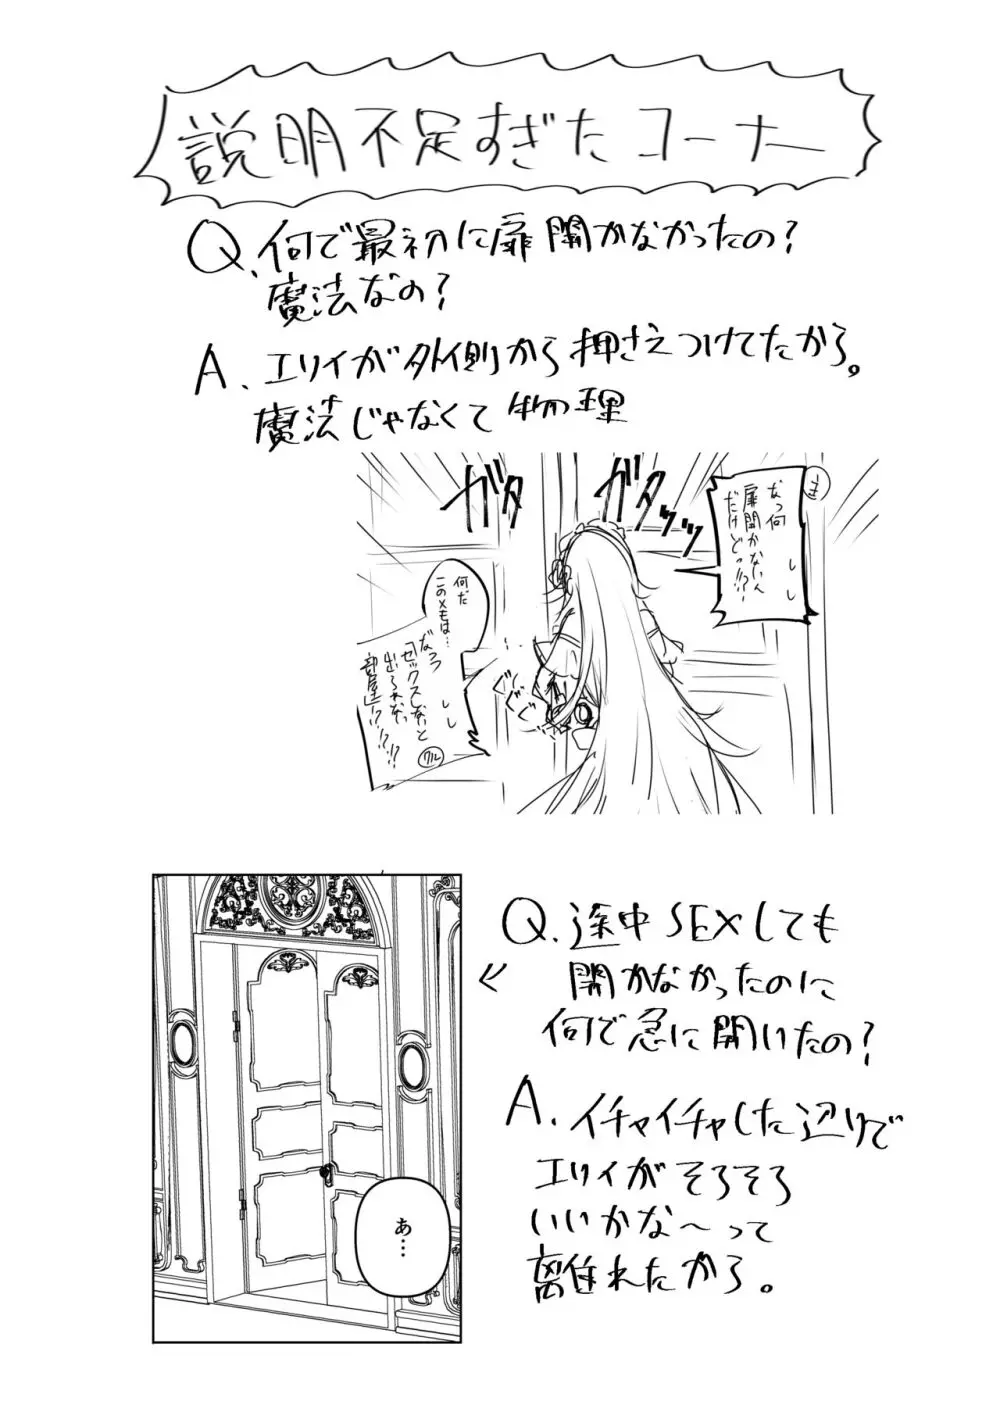 説明不足すぎたコーナー
Q.何で最初に扉開かなかったの?
魔法なの?
A.エリイが外側から押さえつけてたから。
魔法じゃなくて物理
ガタ
ガタッッ
ま
なっ何
扉開かないん
だけどっ!!?
何だ
このメモは…
なっ
「セックスしないと
出られない
部屋」!?!?!?
クル
ぐぐぐ
Q.途中SEXしても
開かなかったのに
何で急に開いたの?
A.イチャイチャした辺りで
エリイがそろそろ
いいかな〜って
離れたから。
あ…